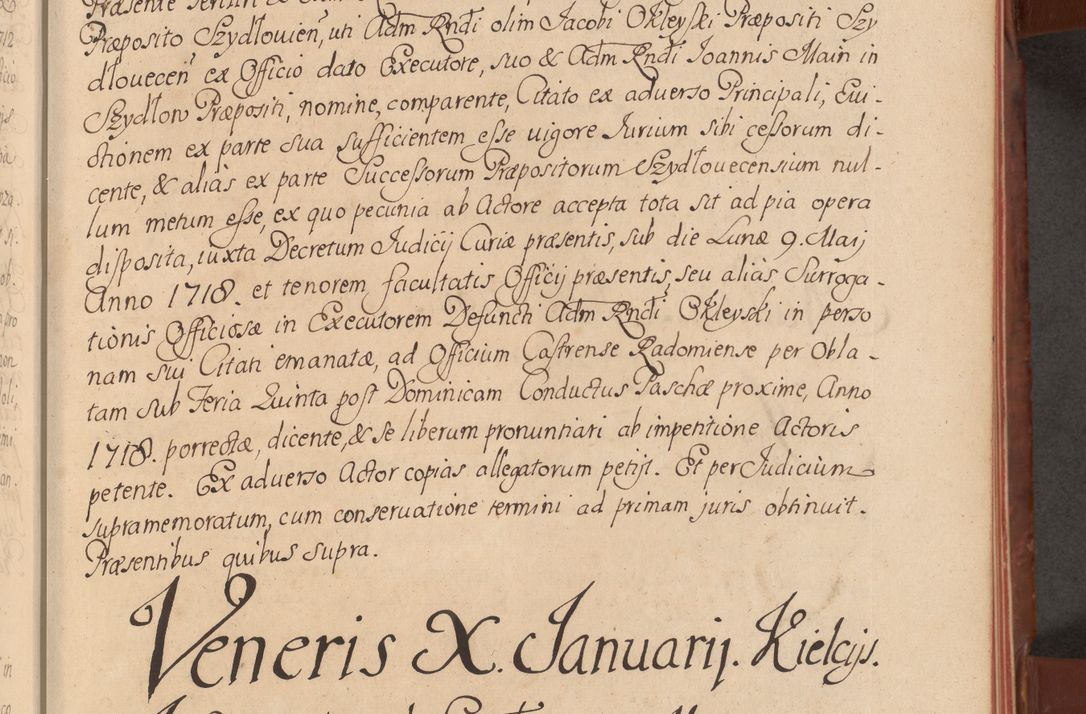 Præposito Szydlovien, uti Adm Rndi olim Jacobi Okleyski Præpositi Szy
dlovecen ex Officio dato Executore, suo & Adm Rndi Joannis Main in
Szydlow Præpositi, nomine, comparente, Citato ex adverso Principali, Evi-
ctionem ex parte sua sufficientem esse vigore Jurium sibi cessorum di-
cente, & alias ex parte Successorum Præpositorum Szydlovecensium nul-
lum metum esse, ex quo pecunia ab Actore accepta tota sit ad pia opera
disposita, iuxta Decretum Judicij Curiæ præsentis, sub die Lunæ 9. Maij
Anno 1718. et tenorem facultatis Officij præsentis, seu alias Surroga-
tionis Officiosæ in Executorem Defuncti Adm Rndi Okleyski in perso
nam sui Citati emanatæ, ad Officium Castrense Radomiense per Obla-
tam sub Feria Quinta post Dominicam Conductus Paschæ proxime, Anno
1718. porrectæ, dicente, & se liberum pronuntiari ab impetitione Actoris
petente. Ex adverso Actor copias allegatorum petijt. Et per Judicium
supramemoratum, cum conservatione termini ad primam juris obtinuit.
Præsentibus quibus supra.
Veneris X. Januarij. Kielcijs.